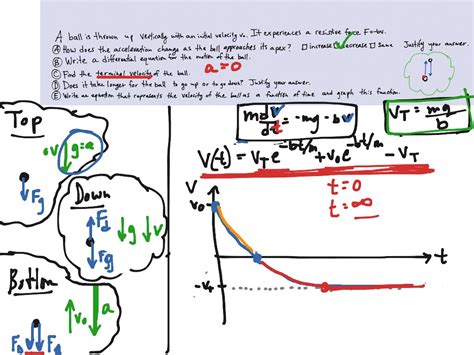 A ball is thrown up vertically with an initial velocity v₀. It experiences a resistive force F=-bv.
Ⓐ How does the acceleration change as the ball approaches its apex? □ increase □ decrease □ Same Justify your answer.
Ⓑ Write a differential equation for the motion of the ball.
a=0
Ⓒ Find the terminal velocity of the ball.
Ⓓ Does it take longer for the ball to go up or to go down? Justify your answer.
Ⓔ Write an equation that represents the velocity of the ball as a function of time and graph this function.
Top
0V g=a
Fg
Down
Fd
g v
Fg
Bottom
v₀ a
Fg
m dv/dt = -mg - bv
V_T = mg/b
V(t) = V_T e^(-bt/m) + v₀e^(-bt/m) - V_T
t=0
t=∞
V
v₀
t